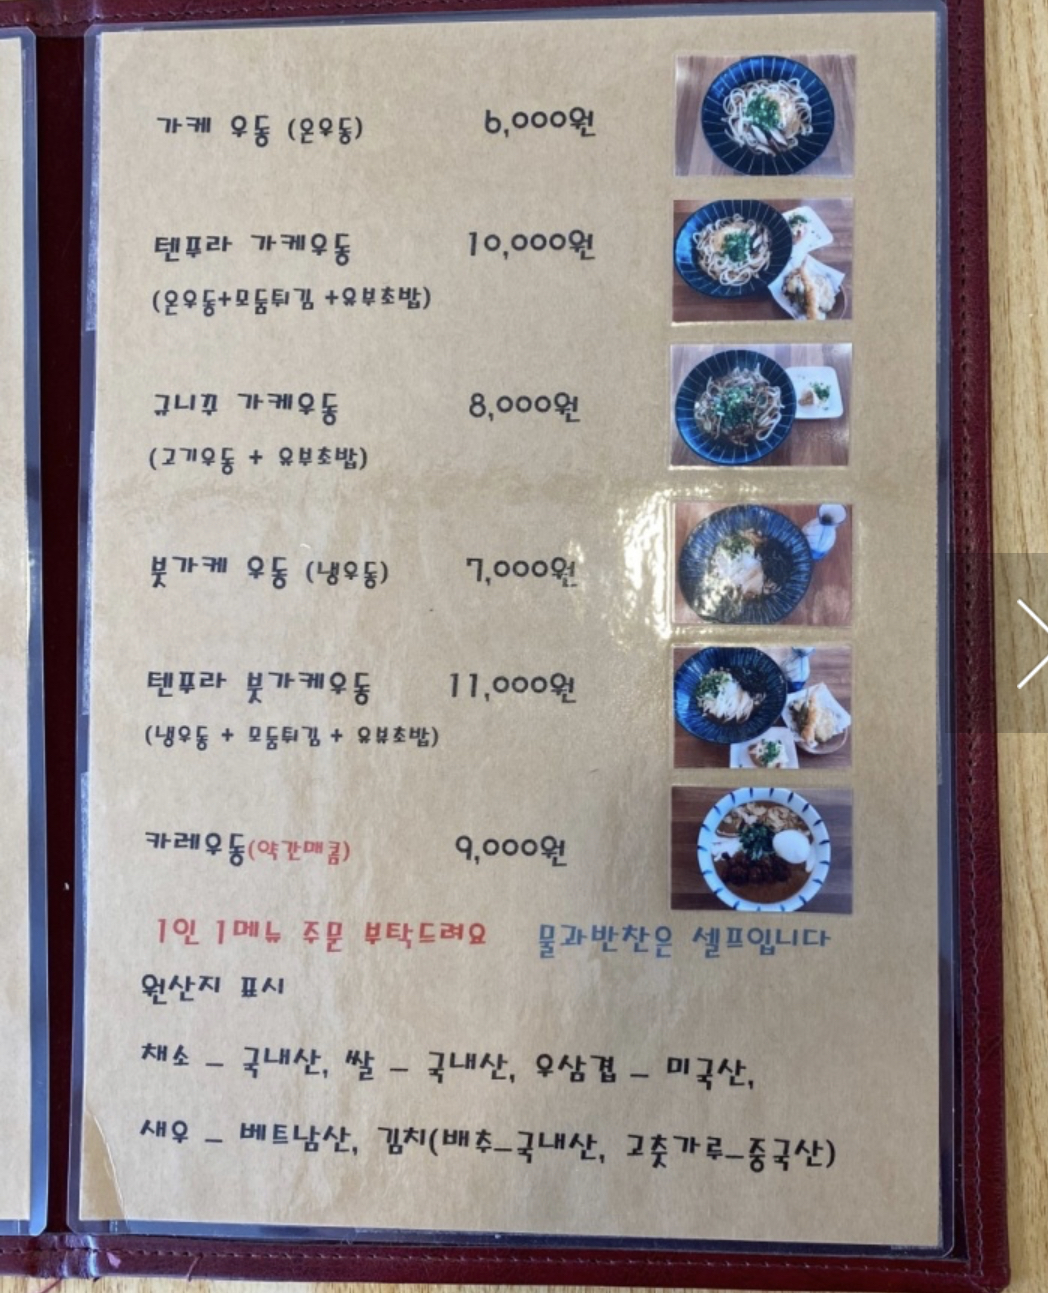 가케 우동 (온우동) 6,000원
텐푸라 가케우동 10,000원
(온우동+모둠튀김 +유부초밥)
규니꾸 가케우동 8,000원
(고기우동 + 유부초밥)
붓가케 우동 (냉우동) 7,000원
텐푸라 붓가케우동 11,000원
(냉우동 + 모둠튀김 + 유뷰초밥)
카레우동(약간매콤) 9,000원
1인 1메뉴 주문 부탁드려요 물과반찬은 셀프입니다
원산지 표시
채소 - 국내산, 쌀 - 국내산, 우삼겹 - 미국산,
새우 - 베트남산, 김치(배추-국내산, 고춧가루-중국산)